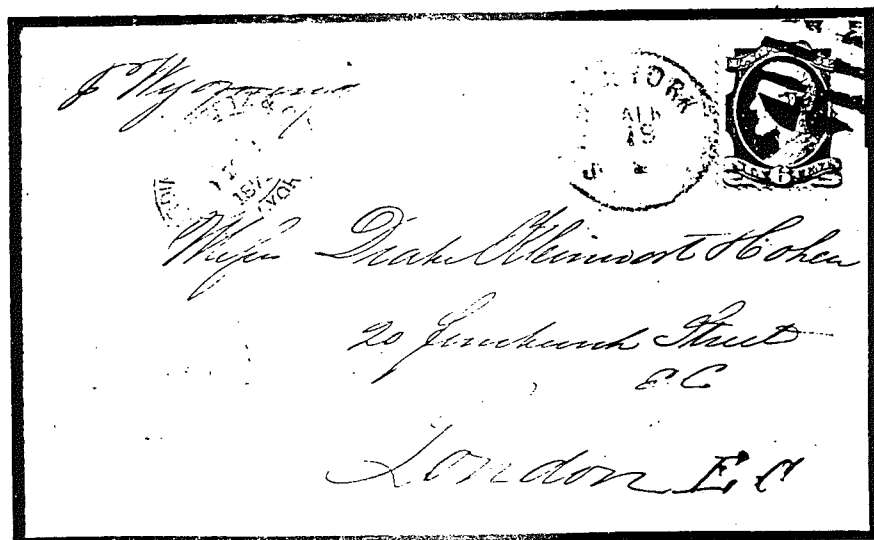 p Wyoming
NEW YORK
18
6
Messrs Drake Kleinwort & Cohen
20 Fenchurch Street
E C
London E C